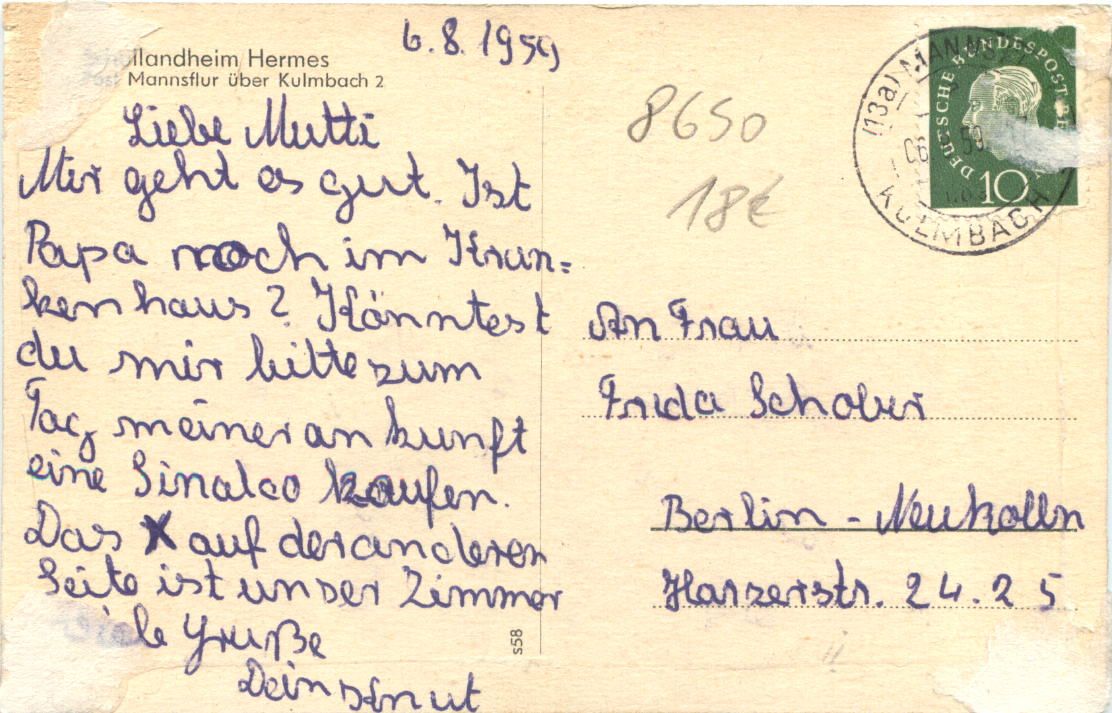 6.8.1959
llandheim Hermes
Post Mannsflur über Kulmbach 2
Liebe Mutti
Mir geht es gut. Ist
Papa noch im Kran=
kenhaus? Könntest
du mir bitte zum
Tag meiner an kunft
eine Sinalco kaufen.
Das X auf der anderen
Seite ist unser Zimmer
le Gruße
Dein Knut
s58
8650
18€
(13a) MANNS
06. 59
KULMBACH
DEUTSCHE BUNDESPOST BE
10
An Frau
Frida Schober
Berlin - Neukölln
Harzerstr. 24.25